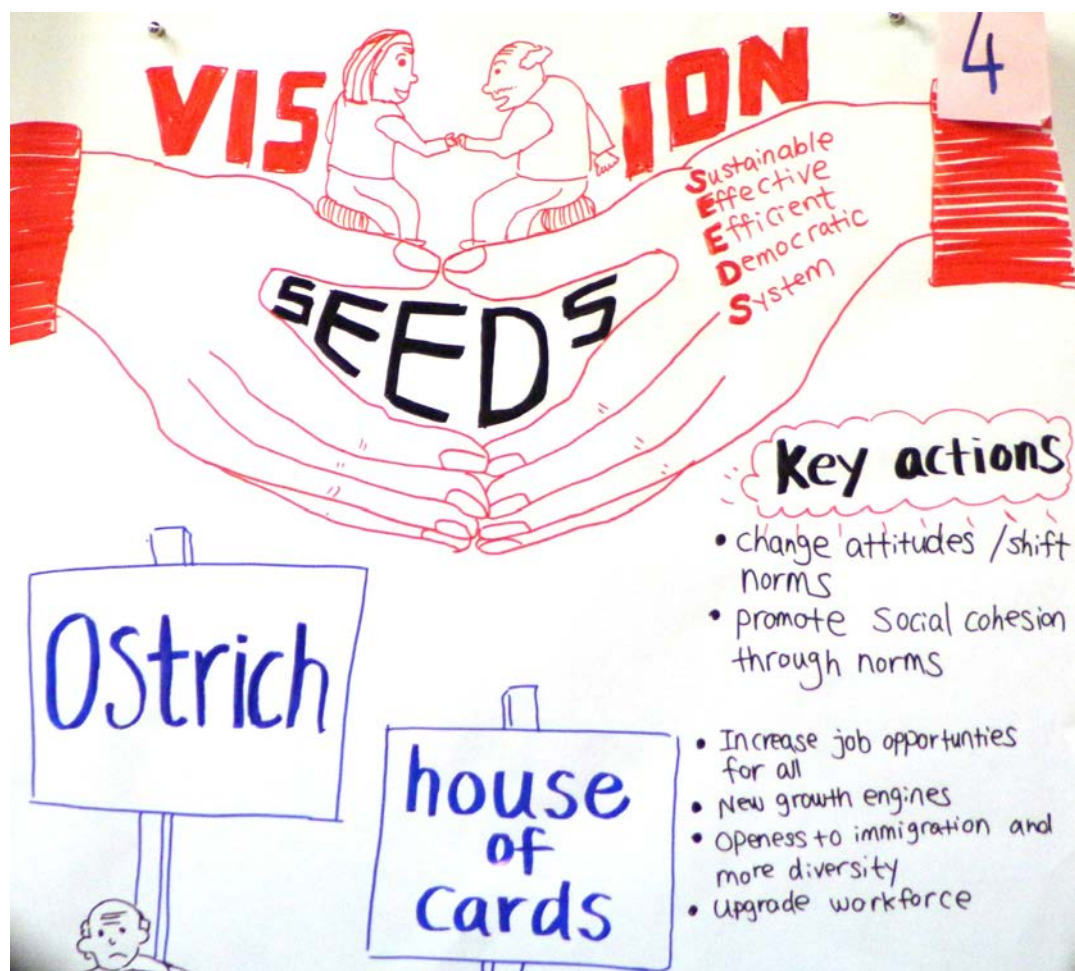 VISION
4
Sustainable
Effective
Efficient
Democratic
System
SEEDS
Key actions
• change attitudes /shift
norms
• promote Social cohesion
through norms
• Increase job opportunties
for all
• New growth engines
• Openess to immigration and
more diversity
• Upgrade workforce
Ostrich
house
of
cards